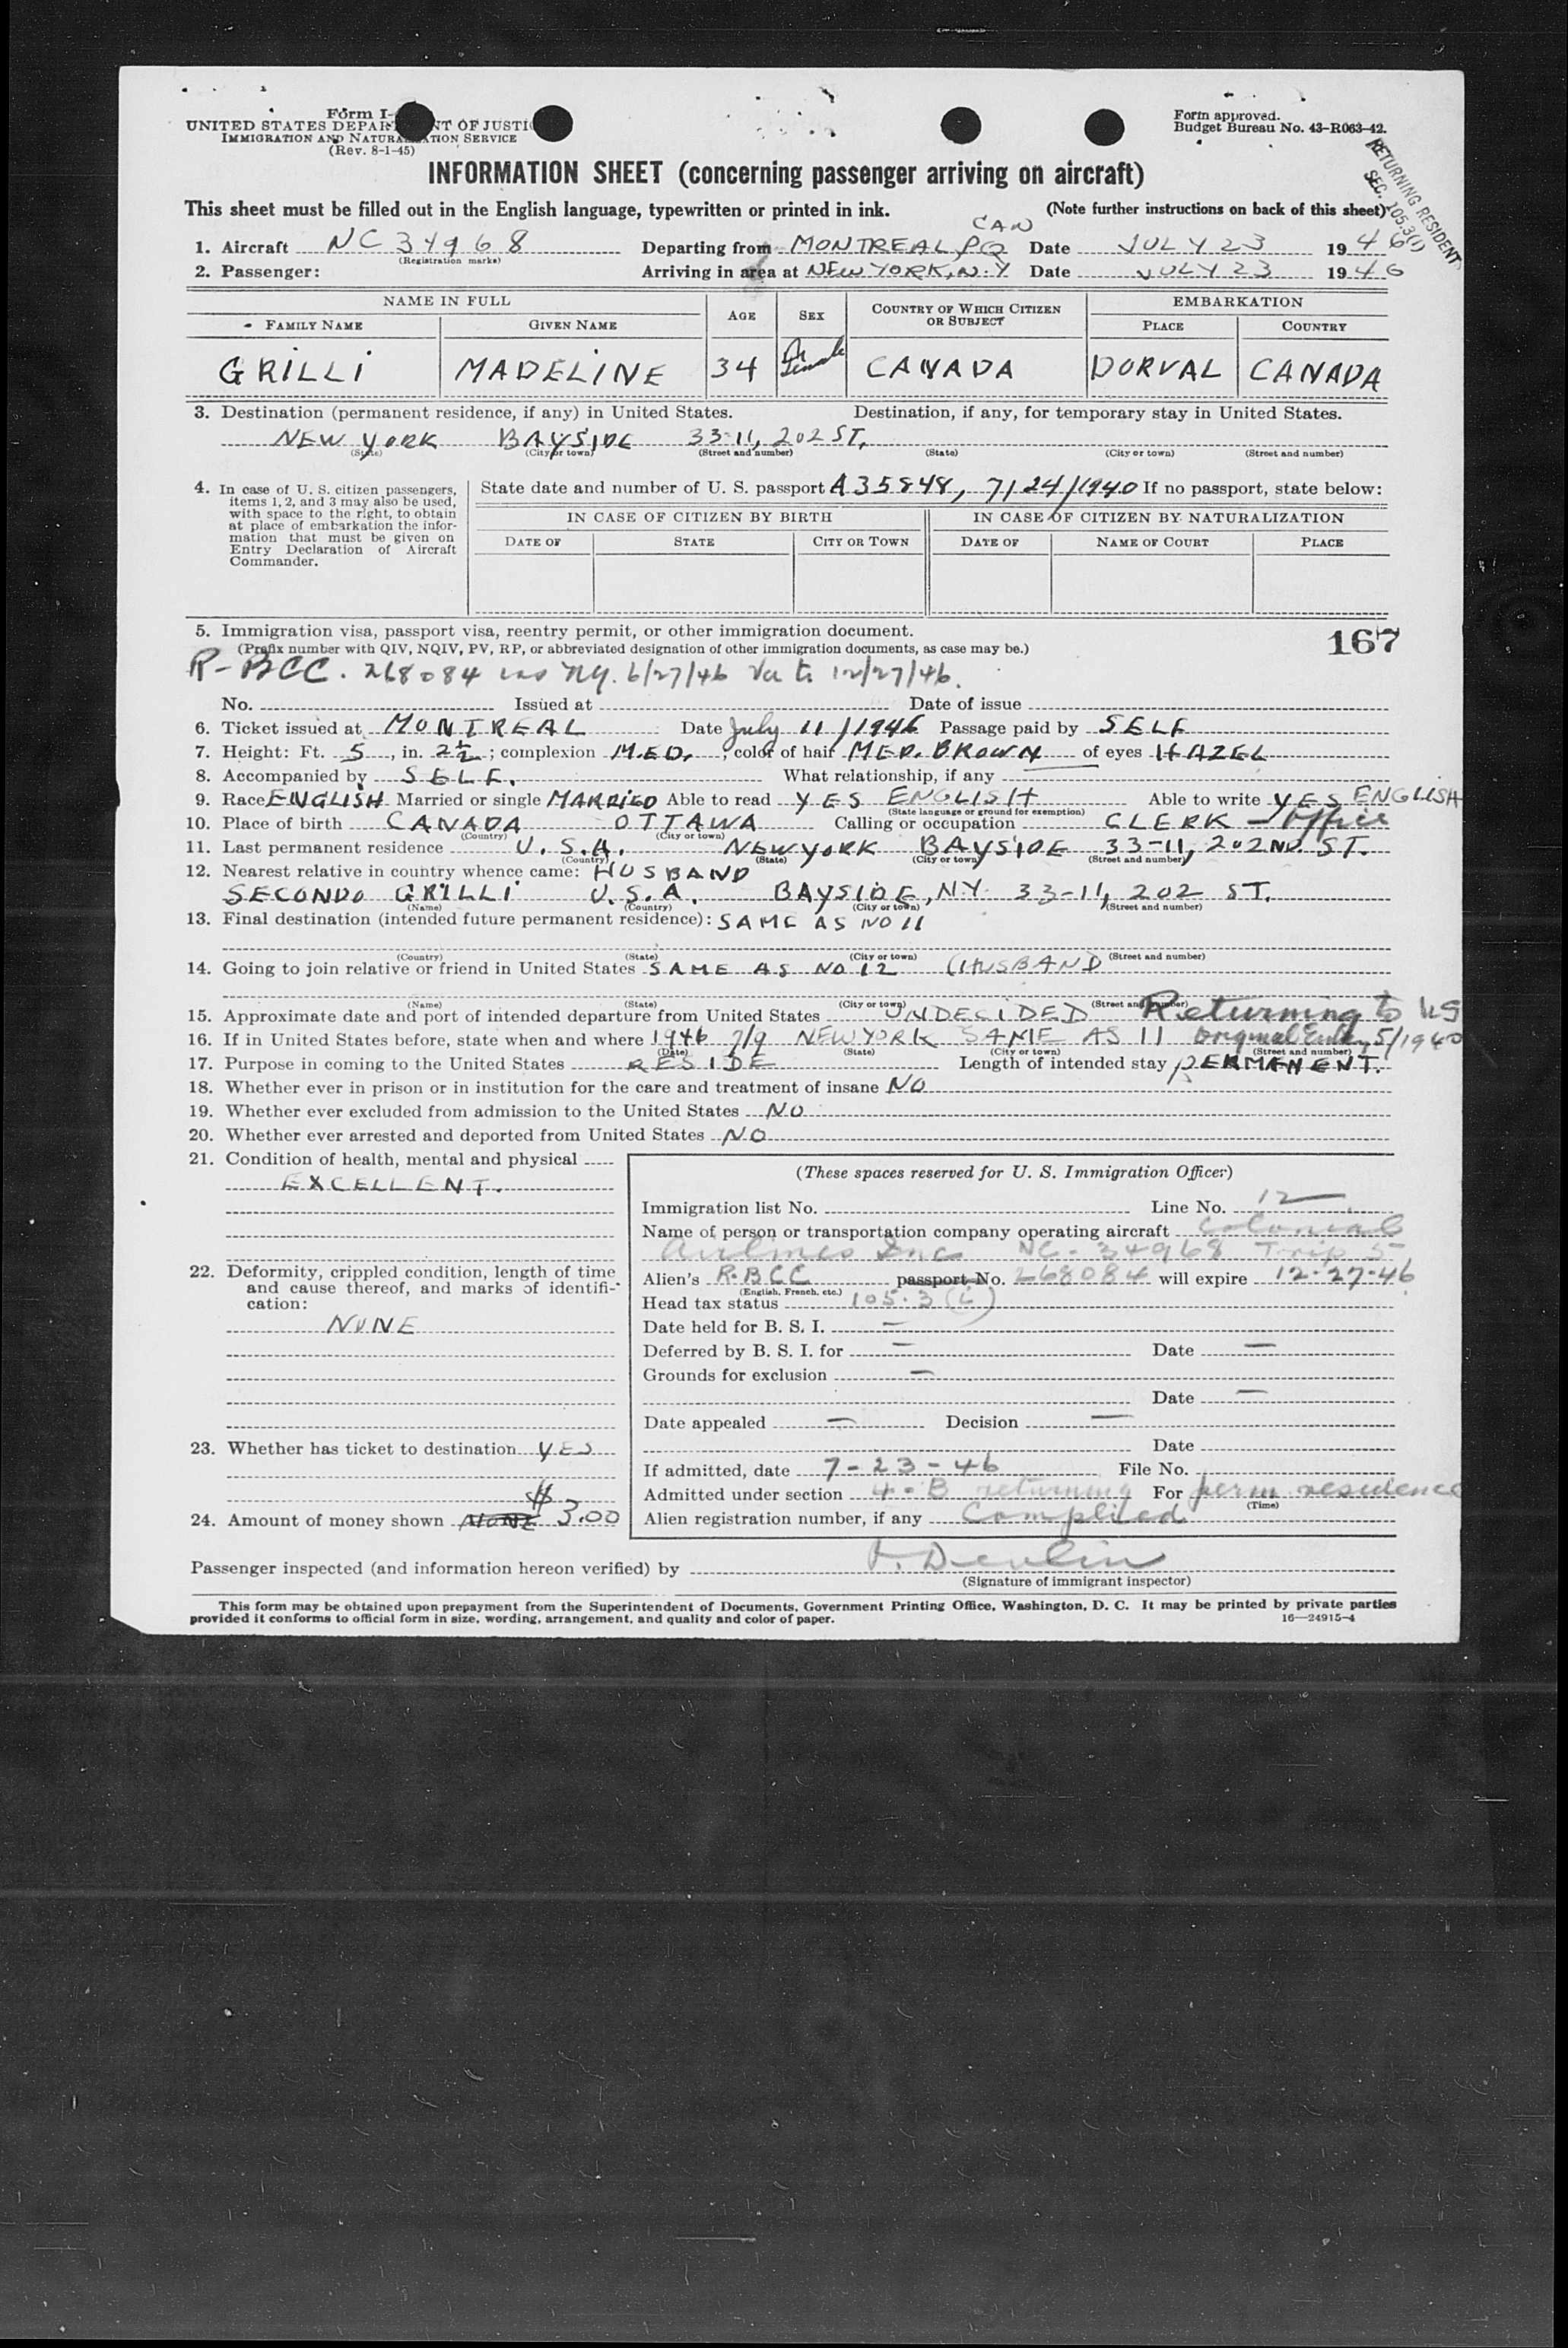 Form I-
UNITED STATES DEPAR NT OF JUSTI
IMMIGRATION AND NATURA ATION SERVICE
(Rev. 8-1-45)
Form approved.
Budget Bureau No. 43-R063-42.
RETURNING RESIDENT
SEC. 105.3(1)
INFORMATION SHEET (concerning passenger arriving on aircraft)
This sheet must be filled out in the English language, typewritten or printed in ink. (Note further instructions on back of this sheet)
CAN
1. Aircraft NC 34968 Departing from MONTREAL PQ Date JULY 23 1946
(Registration marks)
2. Passenger: Arriving in area at NEW YORK, N.Y Date JULY 23 1946
NAME IN FULL AGE SEX COUNTRY OF WHICH CITIZEN OR SUBJECT EMBARKATION
FAMILY NAME GIVEN NAME PLACE COUNTRY
GRILLI MADELINE 34 Female CANADA DORVAL CANADA
3. Destination (permanent residence, if any) in United States. Destination, if any, for temporary stay in United States.
NEW YORK BAYSIDE 33-11, 202 ST.
(State) (City or town) (Street and number) (State) (City or town) (Street and number)
4. In case of U. S. citizen passengers, items 1, 2, and 3 may also be used, with space to the right, to obtain at place of embarkation the information that must be given on Entry Declaration of Aircraft Commander.
State date and number of U. S. passport A35848, 7/24/1940 If no passport, state below:
IN CASE OF CITIZEN BY BIRTH IN CASE OF CITIZEN BY NATURALIZATION
DATE OF STATE CITY OR TOWN DATE OF NAME OF COURT PLACE
5. Immigration visa, passport visa, reentry permit, or other immigration document. 167
(Prefix number with QIV, NQIV, PV, RP, or abbreviated designation of other immigration documents, as case may be.)
R-BCC. 268084 iss NY. 6/27/46 Va to 12/27/46.
No. Issued at Date of issue
6. Ticket issued at MONTREAL Date July 11/1946 Passage paid by SELF
7. Height: Ft. 5, in. 2½; complexion MED.; color of hair MED. BROWN of eyes HAZEL
8. Accompanied by SELF. What relationship, if any
9. Race ENGLISH Married or single MARRIED Able to read YES ENGLISH Able to write YES ENGLISH
(State language or ground for exemption)
10. Place of birth CANADA OTTAWA Calling or occupation CLERK - Office
(Country) (City or town)
11. Last permanent residence U.S.A. NEW YORK BAYSIDE 33-11, 202ND ST.
(Country) (State) (City or town) (Street and number)
12. Nearest relative in country whence came: HUSBAND
SECONDO GRILLI U.S.A. BAYSIDE, NY 33-11, 202 ST.
(Name) (Country) (City or town) (Street and number)
13. Final destination (intended future permanent residence): SAME AS NO 11
(Country) (State) (City or town) (Street and number)
14. Going to join relative or friend in United States SAME AS NO 12 (HUSBAND
(Name) (State) (City or town) (Street and number)
15. Approximate date and port of intended departure from United States UNDECIDED Returning to US
16. If in United States before, state when and where 1946 7/9 NEW YORK SAME AS 11 original Entry 5/1940
(Date) (State) (City or town) (Street and number)
17. Purpose in coming to the United States RESIDE Length of intended stay PERMANENT.
18. Whether ever in prison or in institution for the care and treatment of insane NO
19. Whether ever excluded from admission to the United States NO
20. Whether ever arrested and deported from United States NO
21. Condition of health, mental and physical
EXCELLENT.
22. Deformity, crippled condition, length of time and cause thereof, and marks of identification:
NONE
23. Whether has ticket to destination YES
24. Amount of money shown NONE $3.00
(These spaces reserved for U. S. Immigration Officer)
Immigration list No. Line No. 12
Name of person or transportation company operating aircraft Colonial
Airlines Inc NC-34968 Trip 5
Alien's R-BCC passport No. 268084 will expire 12-27-46
(English, French, etc.)
Head tax status 105.3(L)
Date held for B. S. I. —
Deferred by B. S. I. for — Date —
Grounds for exclusion —
Date —
Date appealed — Decision —
Date
If admitted, date 7-23-46 File No.
Admitted under section 4-B returning For perm residence
(Time)
Alien registration number, if any Complied
Passenger inspected (and information hereon verified) by Devlin
(Signature of immigrant inspector)
This form may be obtained upon prepayment from the Superintendent of Documents, Government Printing Office, Washington, D. C. It may be printed by private parties
provided it conforms to official form in size, wording, arrangement, and quality and color of paper. 16—24915-4